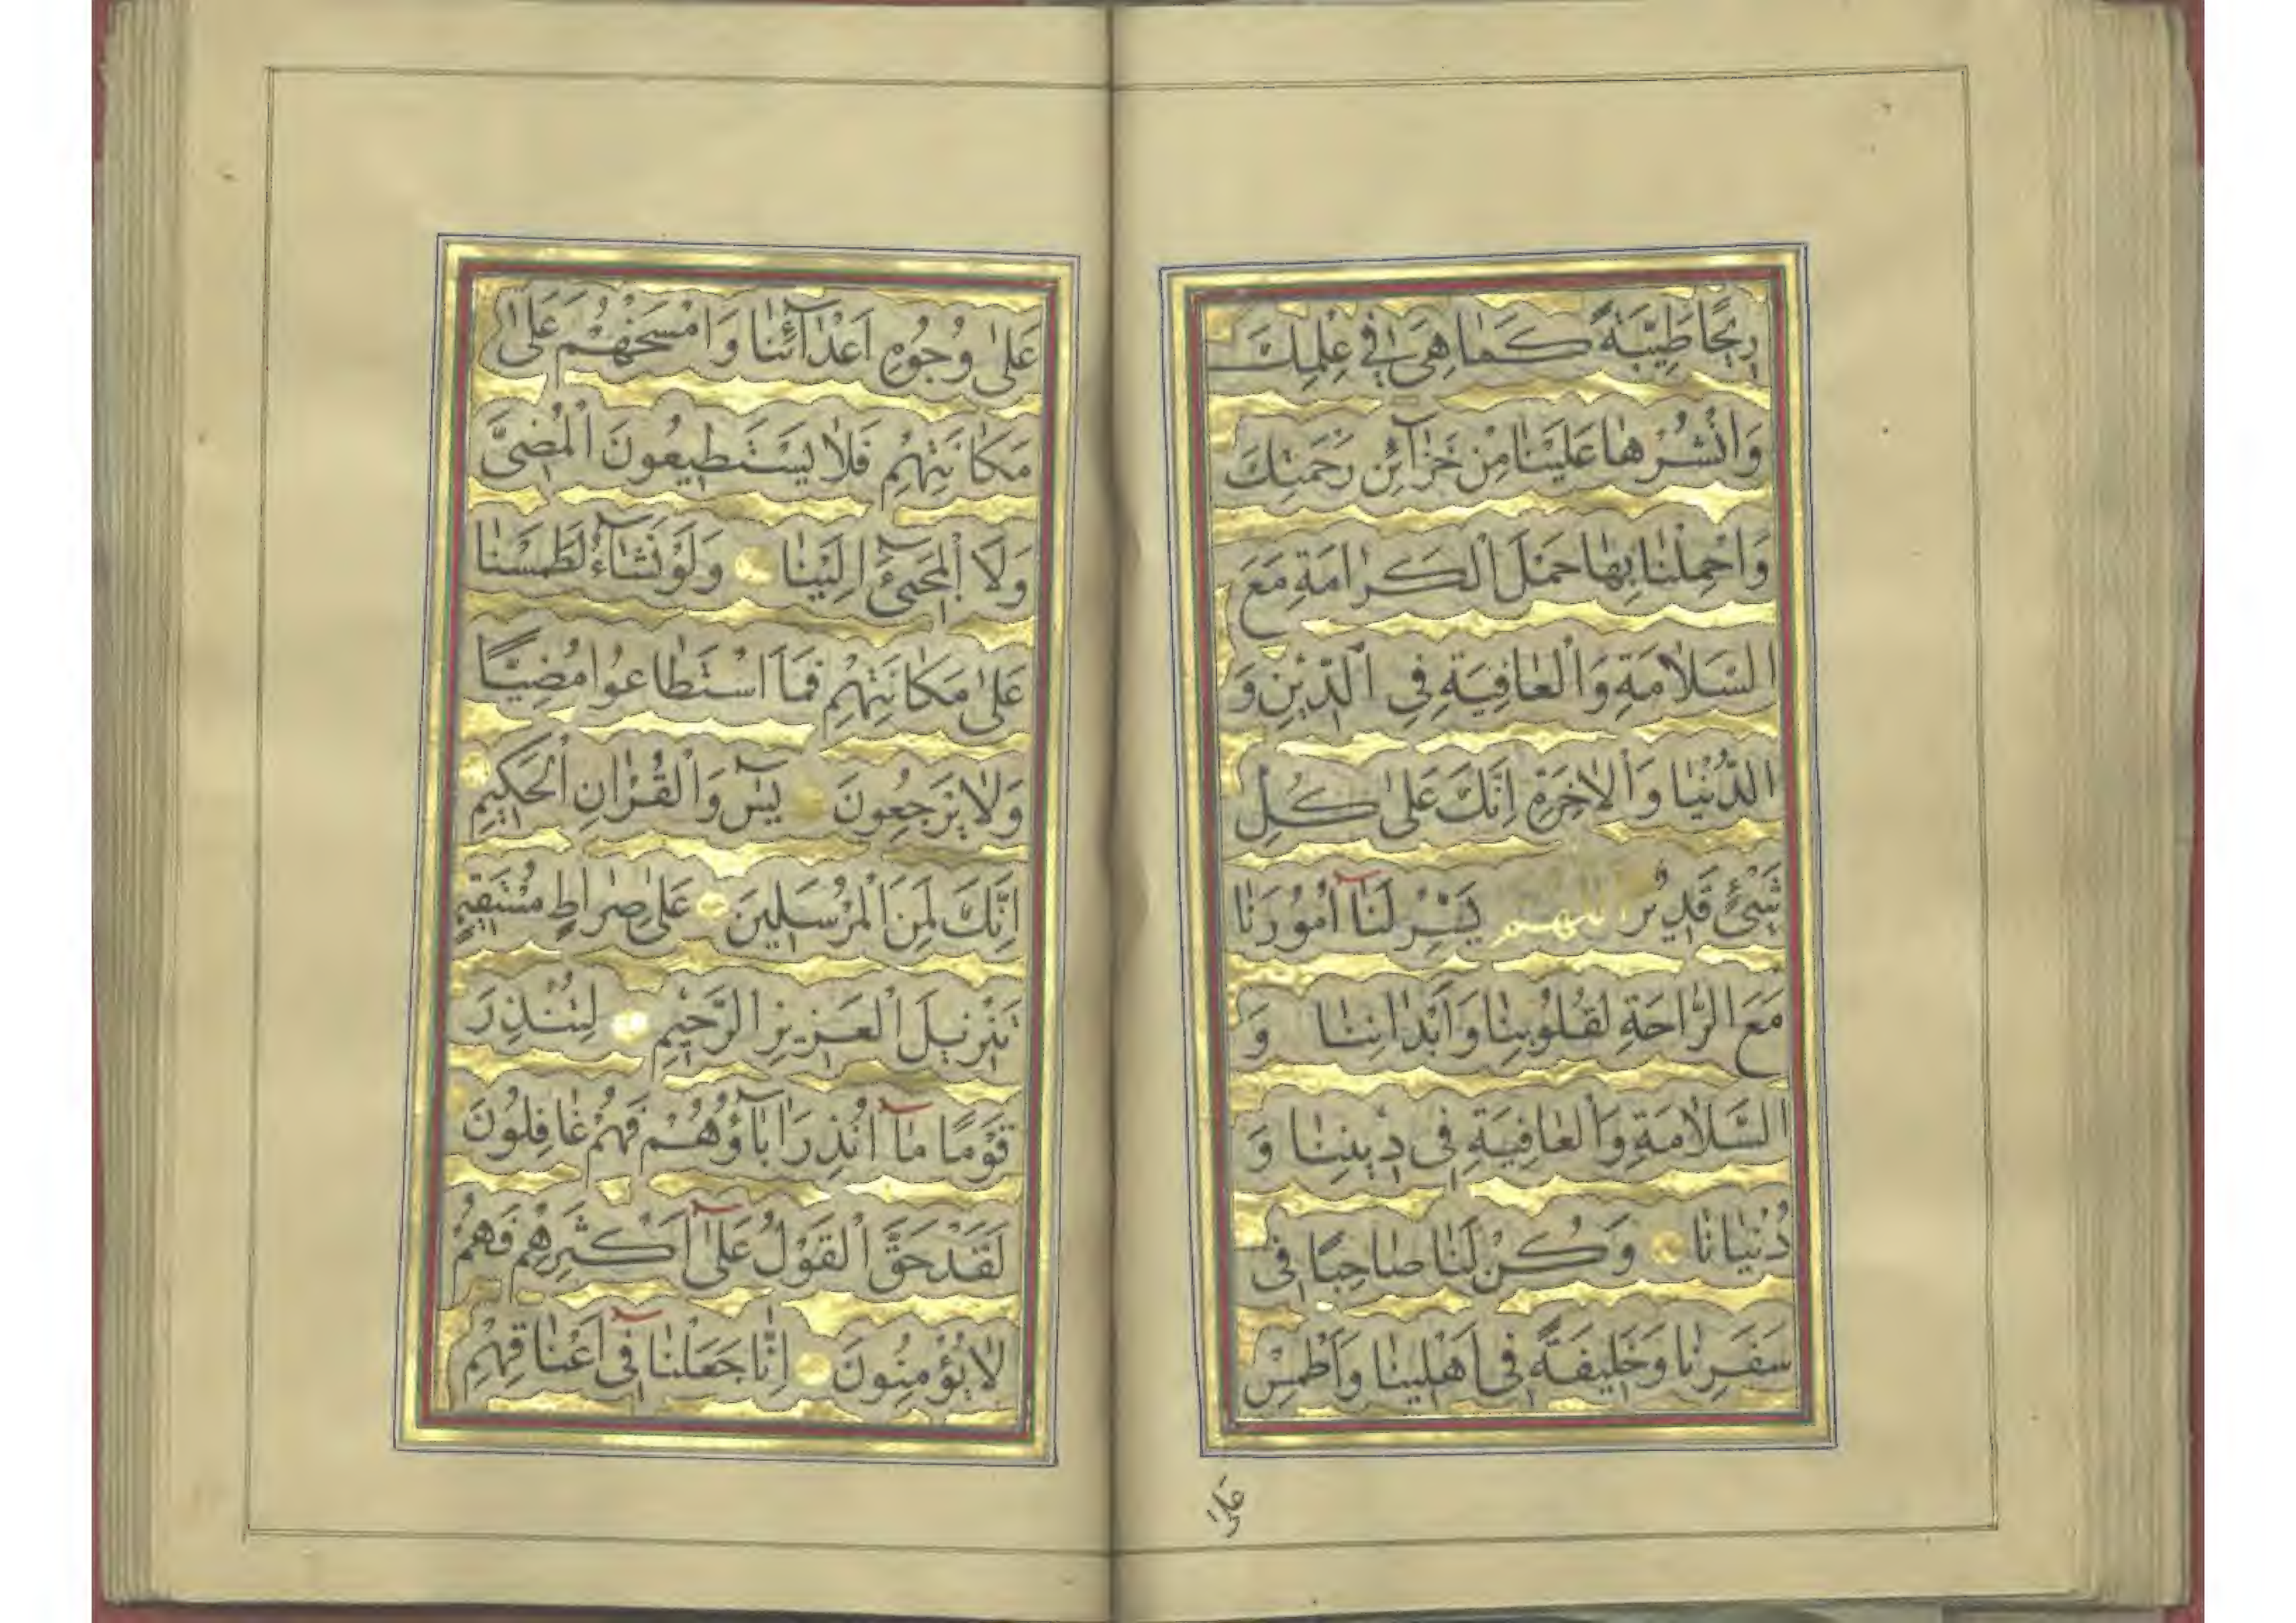 رِيحًا طَيِّبَةً كَمَا هِيَ فِي عِلْمِكَ
وَانْشُرْهَا عَلَيْنَا مِنْ خَزَآئِنِ رَحْمَتِكَ
وَاحْمِلْنَا بِهَا حَمْلَ الْكَرَامَةِ مَعَ
السَّلَامَةِ وَالْعَافِيَةِ فِي الدِّيْنِ وَ
الدُّنْيَا وَالْاٰخِرَةِ اِنَّكَ عَلٰى كُلِّ
شَيْئٍ قَدِيْرٌ اَللّٰهُمَّ يَسِّرْ لَنَآ اُمُوْرَنَا
مَعَ الرَّاحَةِ لِقُلُوْبِنَا وَاَبْدَانِنَا وَ
السَّلَامَةِ وَالْعَافِيَةِ فِى دِيْنِنَا وَ
دُنْيَانَا وَكُنْ لَنَا صَاحِبًا فِى
سَفَرِنَا وَخَلِيفَةً فِى اَهْلِينَا وَاطْمِسْ
عَلٰى
عَلٰى وُجُوْهِ اَعْدَآئِنَا وَامْسَخْهُمْ عَلٰى
مَكَانَتِهِمْ فَلَا يَسْتَطِيعُونَ الْمُضِىَّ
وَلَا الْمَجِيْئَ اِلَيْنَا وَلَوْ نَشَآءُ لَطَمَسْنَا
عَلٰى مَكَانَتِهِمْ فَمَا اسْتَطَاعُوا مُضِيًّا
وَلَا يَرْجِعُونَ يٰسٓ وَالْقُرْاٰنِ الْحَكِيمِ
اِنَّكَ لَمِنَ الْمُرْسَلِينَ عَلٰى صِرَاطٍ مُسْتَقِيمٍ
تَنْزِيلَ الْعَزِيزِ الرَّحِيْمِ لِتُنْذِرَ
قَوْمًا مَآ اُنْذِرَ اٰبَآؤُهُمْ فَهُمْ غَافِلُوْنَ
لَقَدْ حَقَّ الْقَوْلُ عَلٰٓى اَكْثَرِهِمْ فَهُمْ
لَا يُؤْمِنُونَ اِنَّا جَعَلْنَا فِىٓ اَعْنَاقِهِمْ